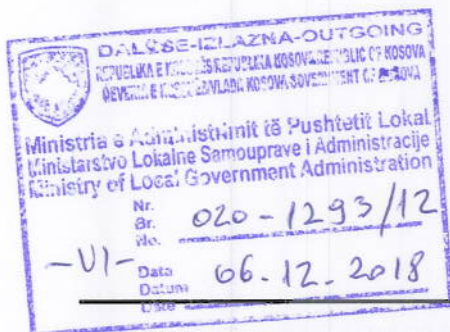 DALËSE-IZLAZNA-OUTGOING
REPUBLIKA E KOSOVËS REPUBLIKA KOSOVA REPUBLIC OF KOSOVA
QEVERIA E KOSOVËS VLADA KOSOVA GOVERNMENT OF KOSOVA
Ministria e Administrimit të Pushtetit Lokal
Ministarstvo Lokalne Samouprave i Administracije
Ministry of Local Government Administration
Nr.
Br. 020-1293/12
No.
-VI-
Data
Datum 06.12.2018
Date